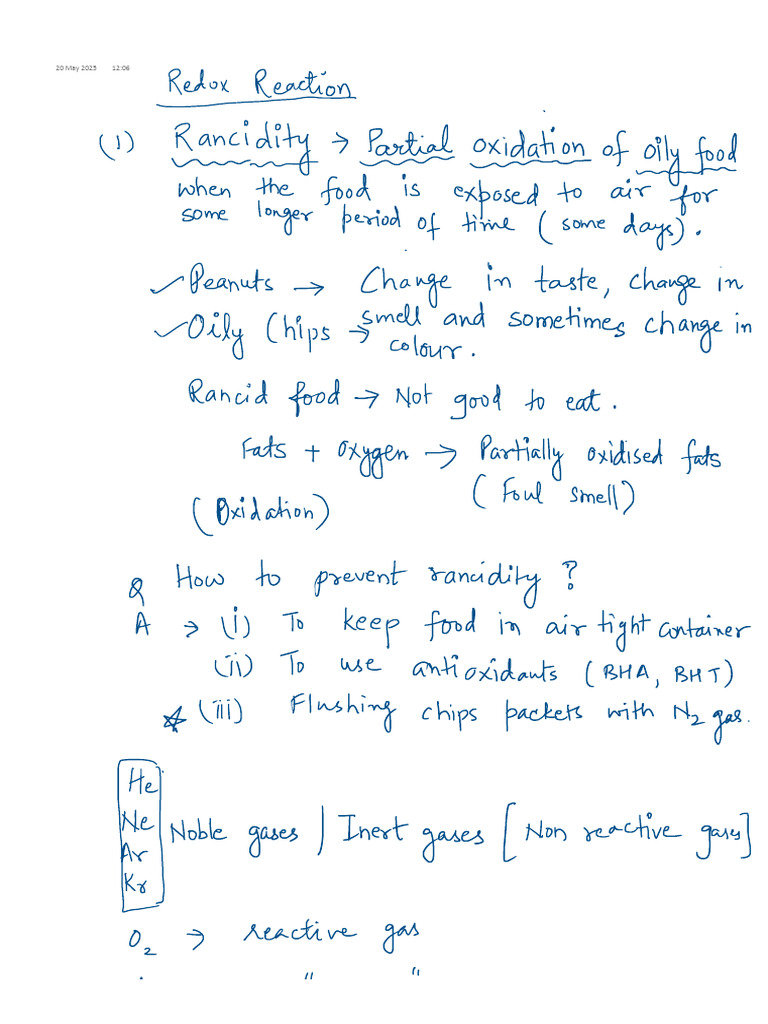 20 May 2025 12:06
Redox Reaction
(1) Rancidity → Partial oxidation of oily food
when the food is exposed to air for
some longer period of time (some days).
✓ Peanuts → Change in taste, change in
✓ Oily Chips → smell and sometimes change in
colour.
Rancid food → Not good to eat.
Fats + Oxygen → Partially oxidised fats
(Foul smell)
(Oxidation)
Q How to prevent rancidity?
A → (i) To keep food in air tight container
(ii) To use antioxidants (BHA, BHT)
☆ (iii) Flushing chips packets with N₂ gas.
He
Ne
Noble gases / Inert gases [Non reactive gases]
Ar
Kr
O₂ → reactive gas
. " "